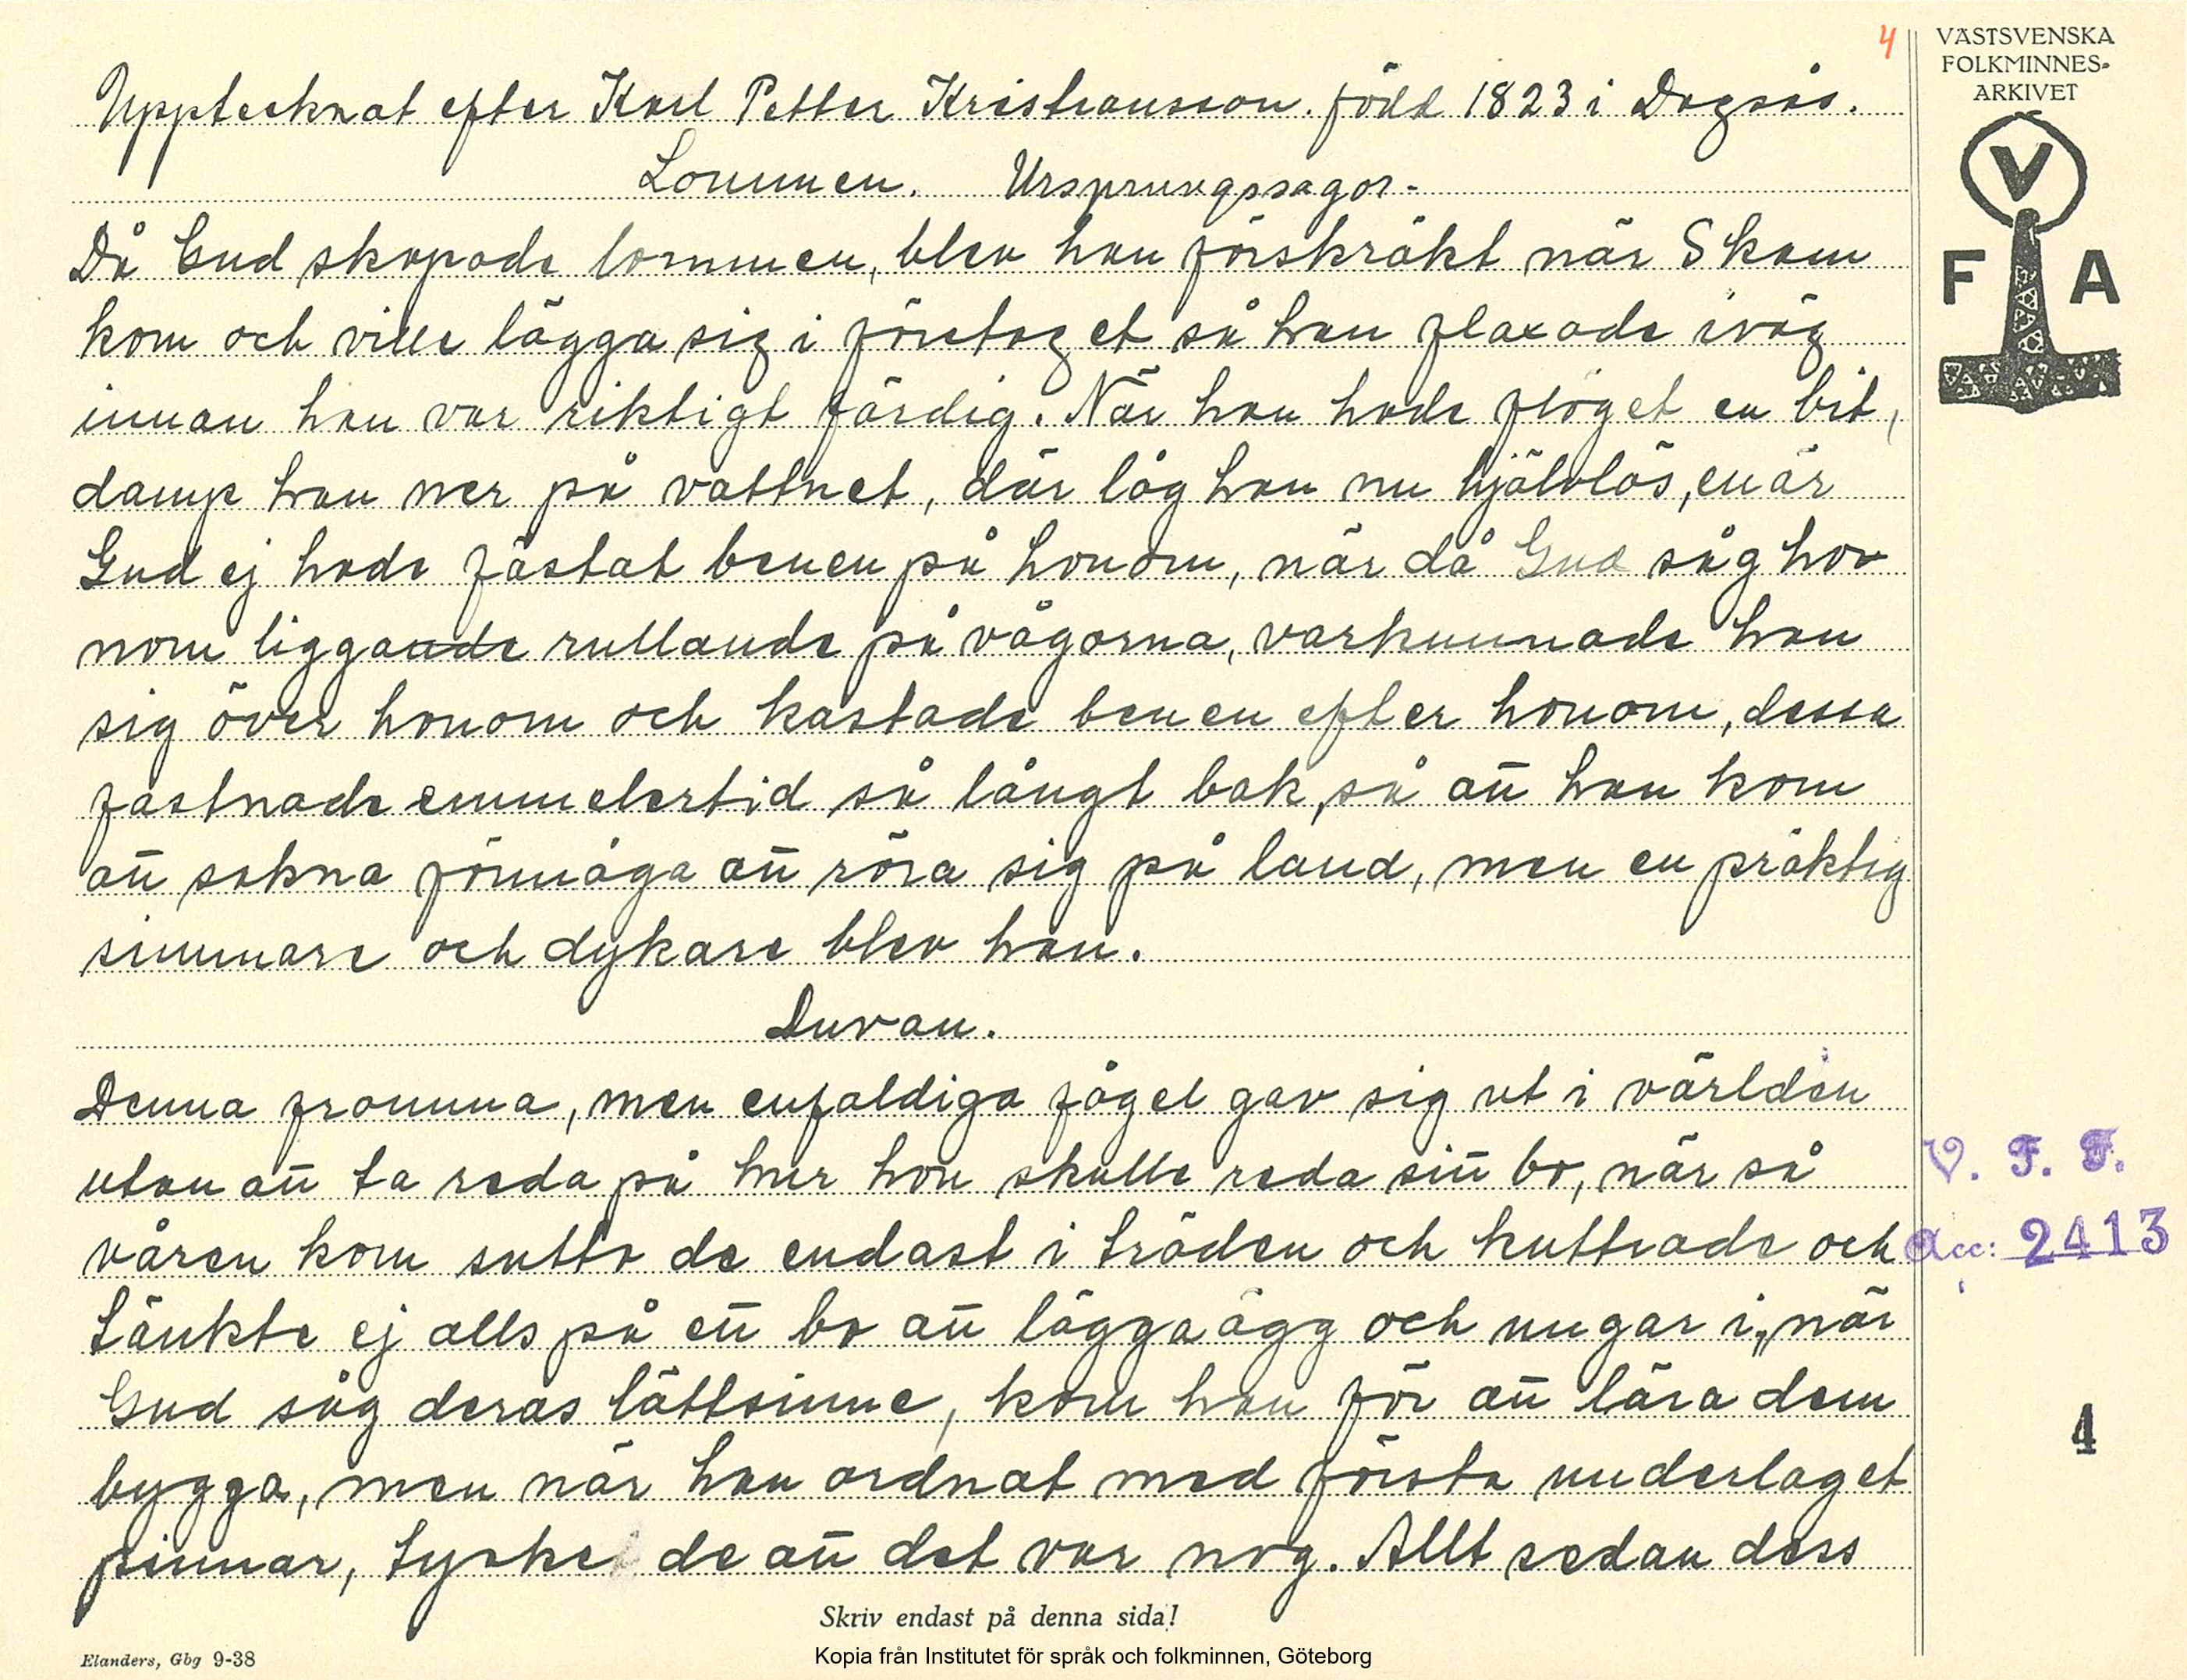 4
VÄSTSVENSKA
FOLKMINNES-
ARKIVET
V
F A
Upptecknat efter Karl Petter Kristiansson. född 1823 i Dagsås.
Lommen. Ursprungssagor-
Då Gud skapade lommen, blev han förskräkt när Skam
kom och ville lägga sig i företaget så han flaxade iväg
innan han var riktigt färdig. När han hade flöget en bit,
damp han ner på vattnet, där låg han nu hjälvlös, enär
Gud ej hade fästat benen på honom, när då Gud såg hov
nom liggande rullande på vågorna, varkunnade han
sig över honom och kastade benen efter honom, dessa
fastnade emmelertid så långt bak, så att han kom
att sakna förmåga att röra sig på land, men en präktig
simmare och dykare blev han.
Duvan.
Denna fromma, men enfaldiga fågel gav sig ut i världen
utan att ta reda på hur hon skulle reda sitt bo, när så
våren kom sutto de endast i träden och kuttrade och
tänkte ej alls på ett bo att lägga ägg och ungar i, när
Gud såg deras lättsinne, kom han för att lära dem
bygga, men när han ordnat med första underlaget
pinnar, tyske de att det var nog. Allt sedan dess
V. F. F.
Acc: 2413
4
Skriv endast på denna sida!
Elanders, Gbg 9-38
Kopia från Institutet för språk och folkminnen, Göteborg